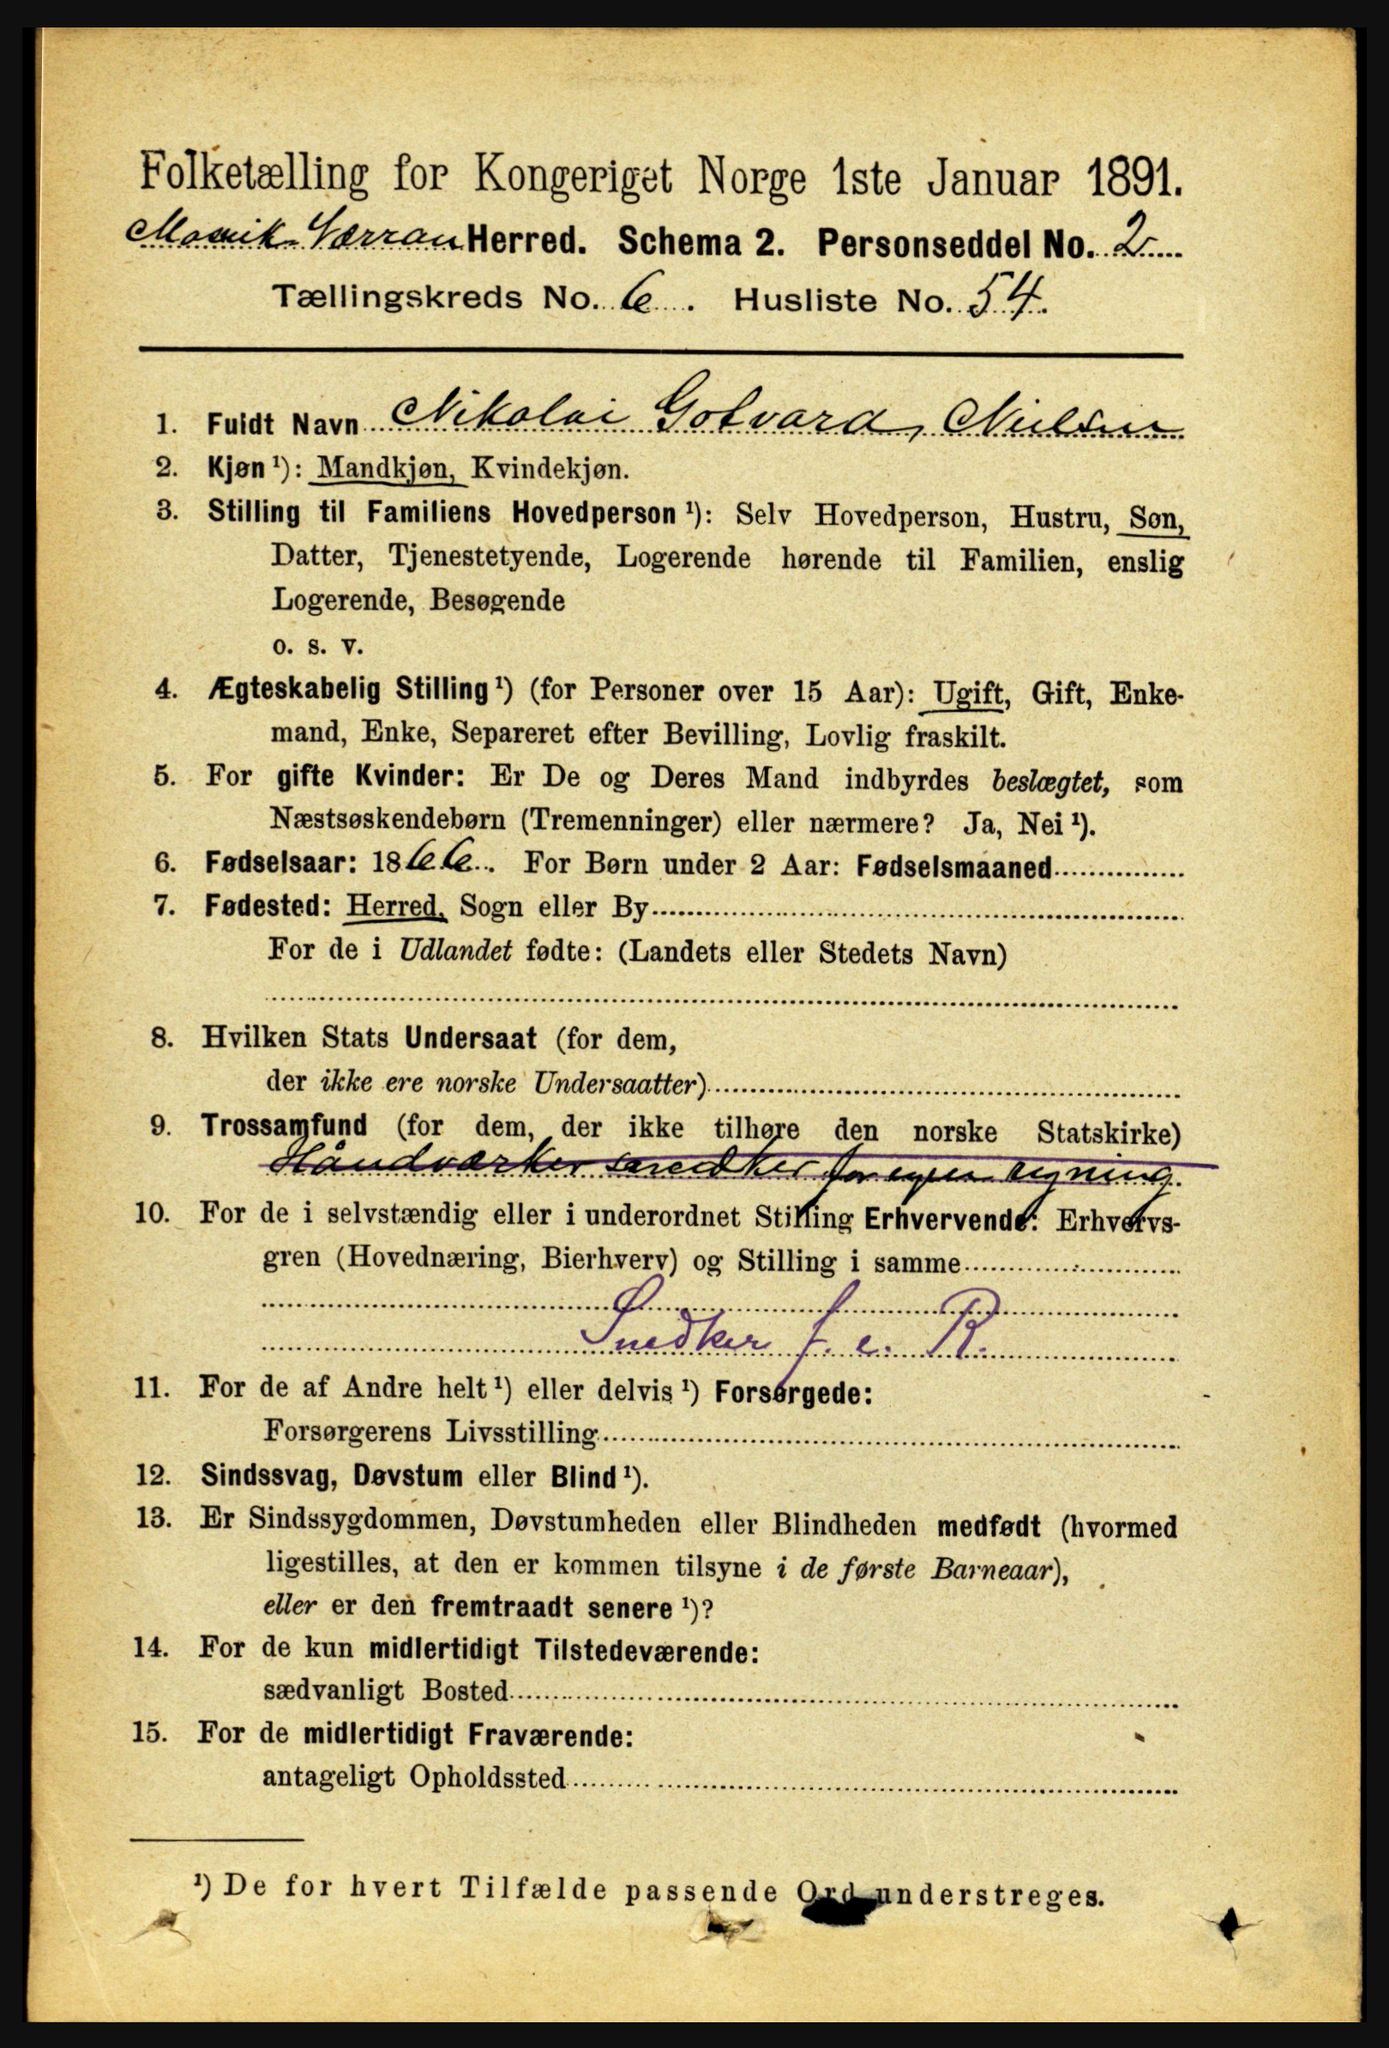 Folketælling for Kongeriget Norge 1ste Januar 1891.
Mosvik-Værran Herred. Schema 2. Personseddel No. 2
Tællingskreds No. 6. Husliste No. 54.
1. Fuldt Navn Nikolai Gotvard, Nielsen
2. Kjøn ¹): Mandkjøn, Kvindekjøn.
3. Stilling til Familiens Hovedperson ¹): Selv Hovedperson, Hustru, Søn,
Datter, Tjenestetyende, Logerende hørende til Familien, enslig
Logerende, Besøgende
o. s. v.
4. Ægteskabelig Stilling ¹) (for Personer over 15 Aar): Ugift, Gift, Enke-
mand, Enke, Separeret efter Bevilling, Lovlig fraskilt.
5. For gifte Kvinder: Er De og Deres Mand indbyrdes beslægtet, som
Næstsøskendebørn (Tremenninger) eller nærmere? Ja, Nei ¹).
6. Fødselsaar: 1866. For Børn under 2 Aar: Fødselsmaaned
7. Fødested: Herred, Sogn eller By
For de i Udlandet fødte: (Landets eller Stedets Navn)
8. Hvilken Stats Undersaat (for dem,
der ikke ere norske Undersaatter)
9. Trossamfund (for dem, der ikke tilhøre den norske Statskirke)
Håndværker snedker for egen regning.
10. For de i selvstændig eller i underordnet Stilling Erhvervende: Erhvervs-
gren (Hovednæring, Bierhverv) og Stilling i samme
Snedker f. e. R.
11. For de af Andre helt ¹) eller delvis ¹) Forsørgede:
Forsørgerens Livsstilling
12. Sindssvag, Døvstum eller Blind ¹).
13. Er Sindssygdommen, Døvstumheden eller Blindheden medfødt (hvormed
ligestilles, at den er kommen tilsyne i de første Barneaar),
eller er den fremtraadt senere ¹)?
14. For de kun midlertidigt Tilstedeværende:
sædvanligt Bosted
15. For de midlertidigt Fraværende:
antageligt Opholdssted
¹) De for hvert Tilfælde passende Ord understreges.